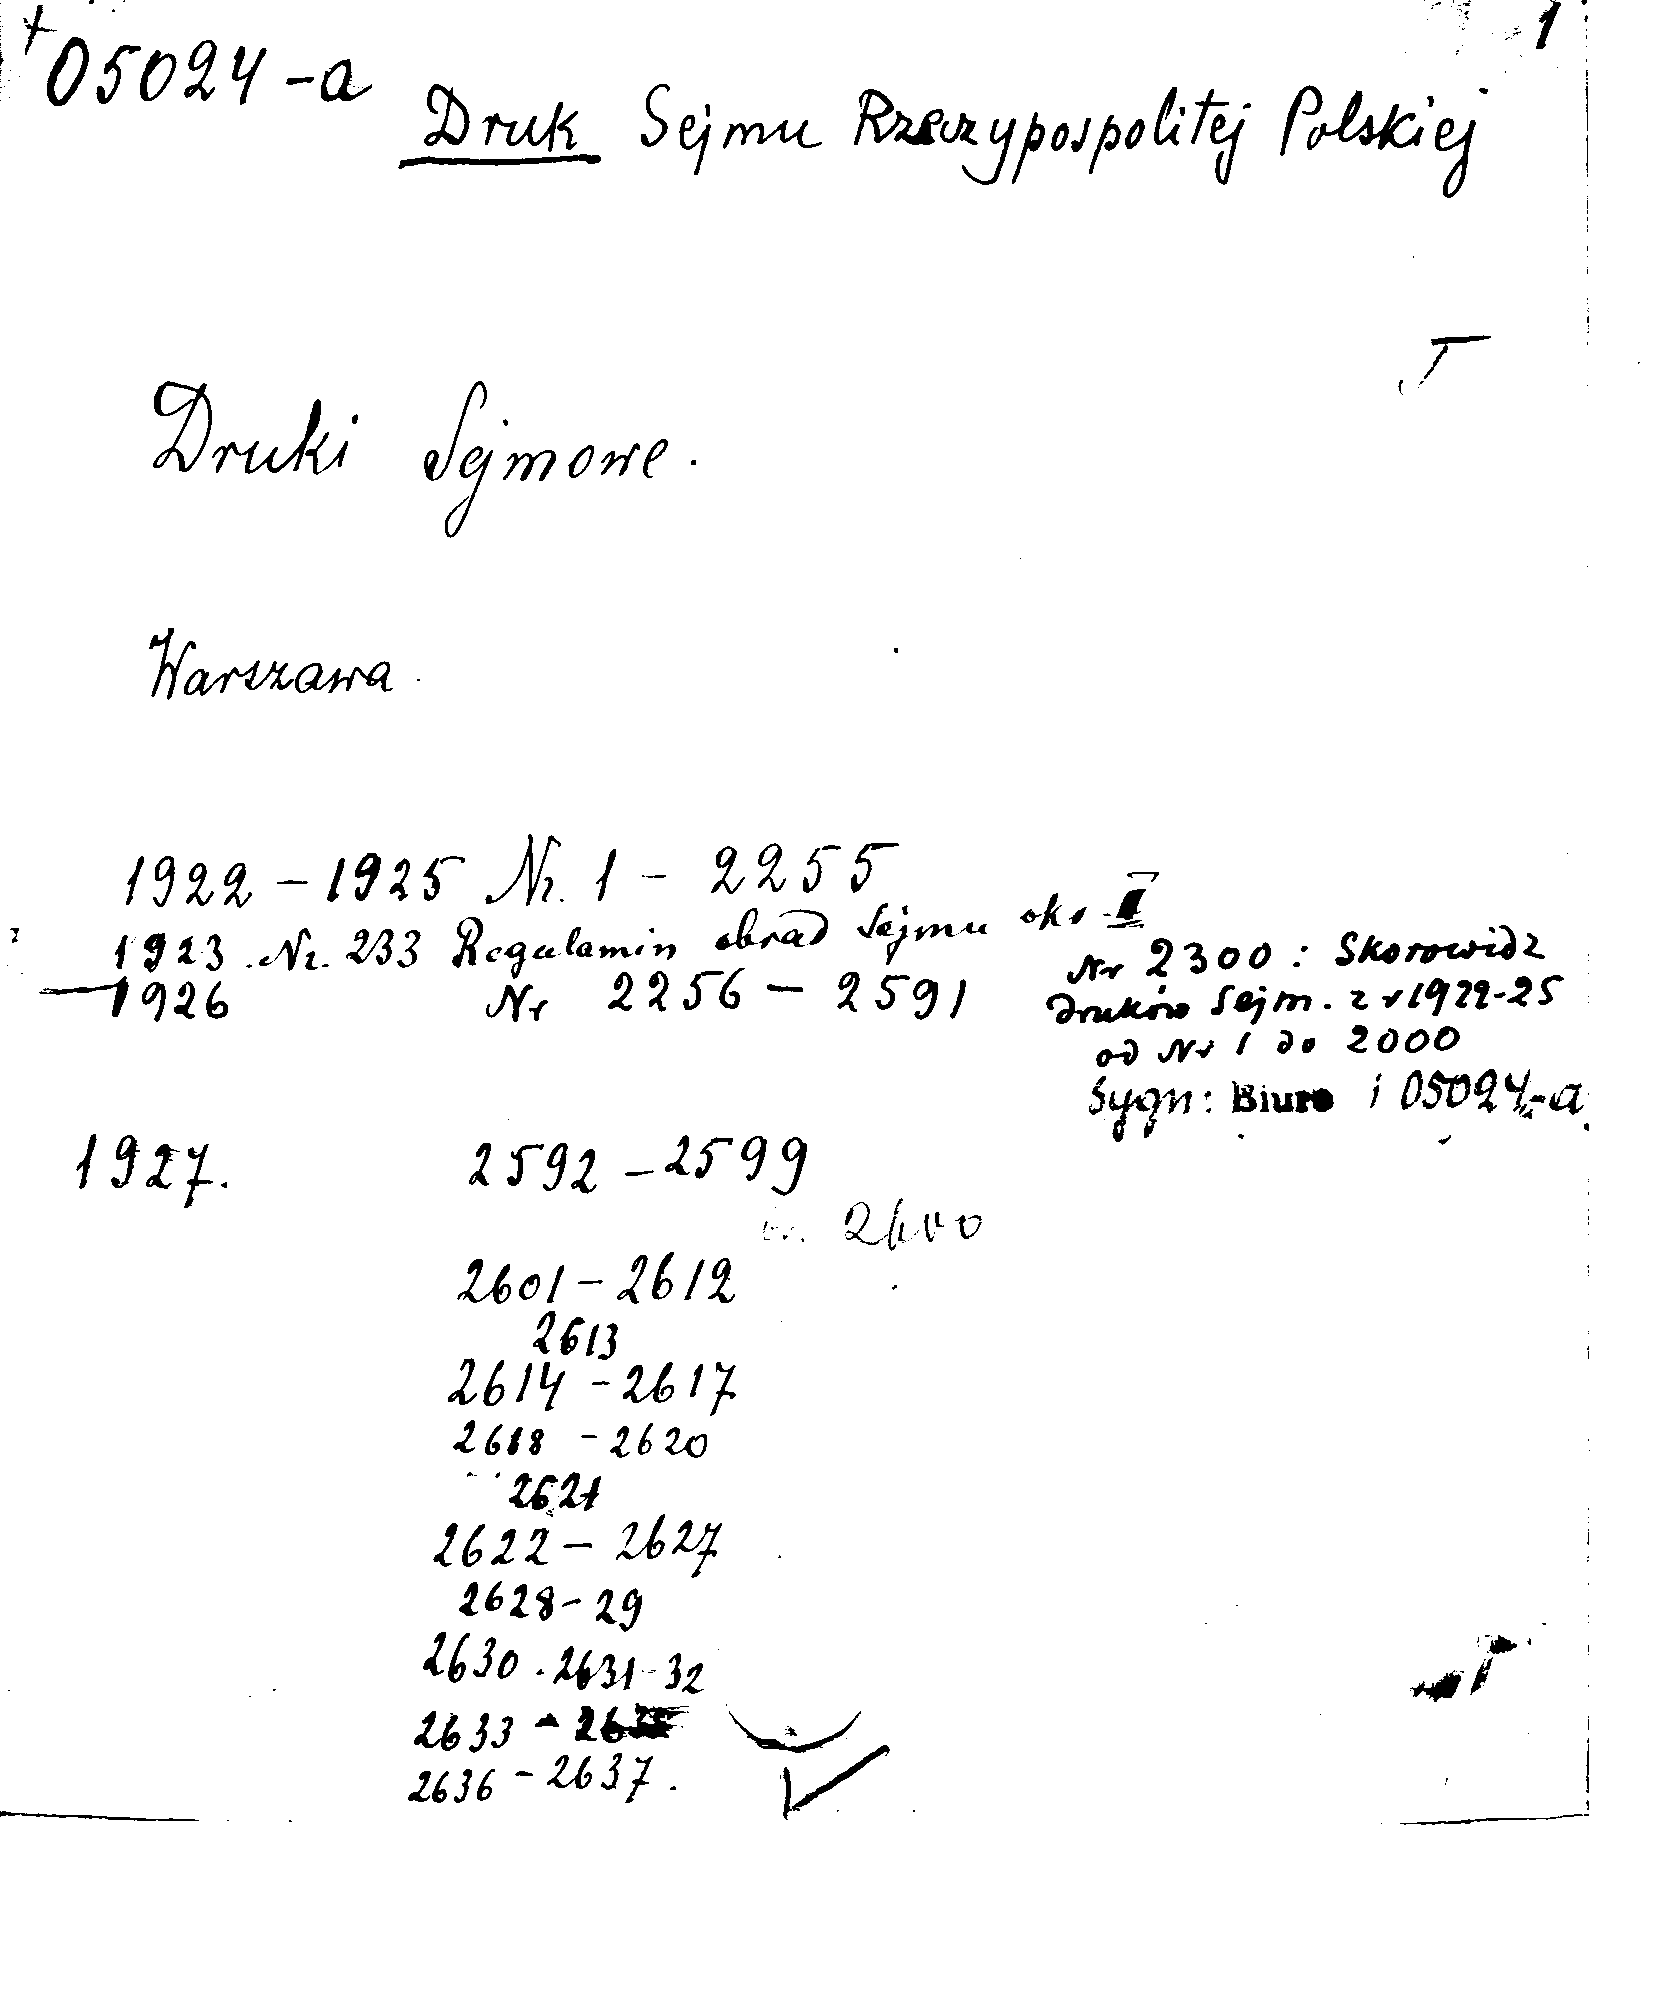 1
05024-a
Druk Sejmu Rzeczypospolitej Polskiej
Druki Sejmowe.
Warszawa
1922 – 1925 Nr. 1 – 2255
1923 Nr. 233 Regulamin obrad Sejmu okr. II
1926 Nr 2256 – 2591
Nr 2300 : Skorowidz
druków Sejm. z r 1922-25
od Nr 1 do 2000
Sygn: Biuro i 05024-a
1927. 2592 – 2599
2600
2601 – 2612
2613
2614 – 2617
2618 – 2620
2621
2622 – 2627
2628 – 29
2630 . 2631-32
2633 –
2636 – 2637.